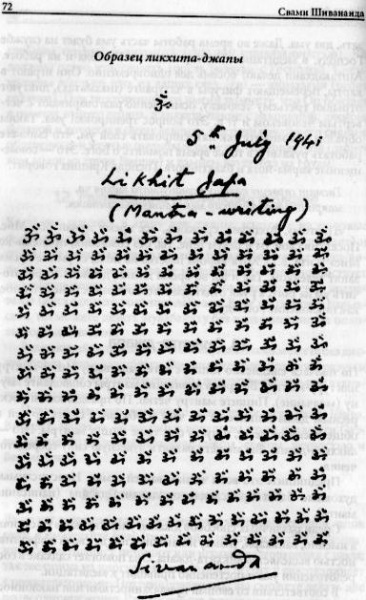 72
Свами Шивананда
Образец ликхита-джапы
ॐ
5th July 1941
Likhit Japa
(Mantra-writing)
ॐ ॐ ॐ ॐ ॐ ॐ ॐ ॐ ॐ ॐ ॐ ॐ ॐ
ॐ ॐ ॐ ॐ ॐ ॐ ॐ ॐ ॐ ॐ ॐ ॐ ॐ
ॐ ॐ ॐ ॐ ॐ ॐ ॐ ॐ ॐ ॐ ॐ ॐ ॐ
ॐ ॐ ॐ ॐ ॐ ॐ ॐ ॐ ॐ ॐ ॐ ॐ ॐ
ॐ ॐ ॐ ॐ ॐ ॐ ॐ ॐ ॐ ॐ ॐ ॐ ॐ
ॐ ॐ ॐ ॐ ॐ ॐ ॐ ॐ ॐ ॐ ॐ ॐ ॐ
ॐ ॐ ॐ ॐ ॐ ॐ ॐ ॐ ॐ ॐ ॐ ॐ ॐ
ॐ ॐ ॐ ॐ ॐ ॐ ॐ ॐ ॐ ॐ ॐ ॐ ॐ
ॐ ॐ ॐ ॐ ॐ ॐ ॐ ॐ ॐ ॐ ॐ ॐ ॐ
ॐ ॐ ॐ ॐ ॐ ॐ ॐ ॐ ॐ ॐ ॐ ॐ ॐ ॐ
ॐ ॐ ॐ ॐ ॐ ॐ ॐ ॐ ॐ ॐ ॐ ॐ ॐ
ॐ ॐ ॐ ॐ ॐ ॐ ॐ ॐ ॐ ॐ ॐ ॐ ॐ
ॐ ॐ ॐ ॐ ॐ ॐ ॐ ॐ ॐ ॐ ॐ ॐ ॐ
ॐ ॐ ॐ ॐ ॐ ॐ ॐ ॐ ॐ ॐ ॐ ॐ ॐ
ॐ ॐ ॐ ॐ ॐ ॐ ॐ ॐ ॐ ॐ ॐ ॐ ॐ ॐ
ॐ ॐ ॐ ॐ ॐ ॐ ॐ ॐ ॐ ॐ ॐ ॐ ॐ
Sivananda